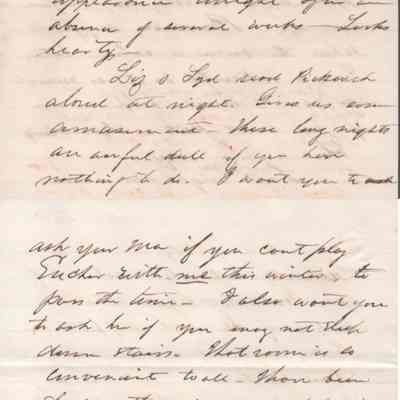 absence of several weeks - Looks
hearty -
Liz & Syd read Pickwick
aloud at night. Gives us some
amusement - These long nights
are awful dull if you have
nothing to do. I want you to ask
ask your Ma if you can't play
Eucher with me this winter, to
pass the time - I also want you
to ask her if you may not sleep
down stairs. That room is so
convenient to all - I have been